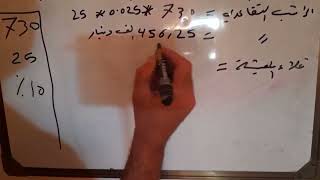 الراتب التقاعدي = 730 * 0.025 * 25
" = 456,25 الف دينار
غلاء المعيشة =
730
25
%10